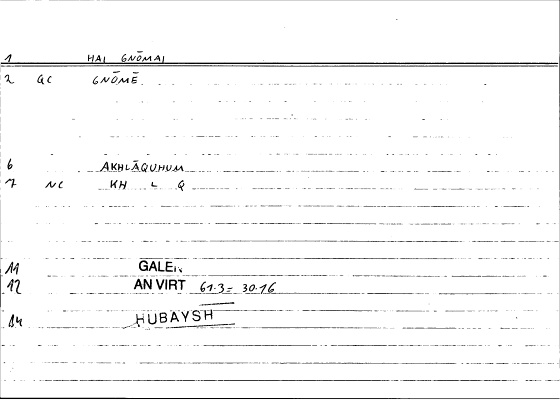 1 HAI GNŌMAI
2 GC GNŌMĒ
6 AKHLĀQUHUM
7 NC KH L Q
11 GALEN
12 AN VIRT 61.3 = 30.16
14 HUBAYSH